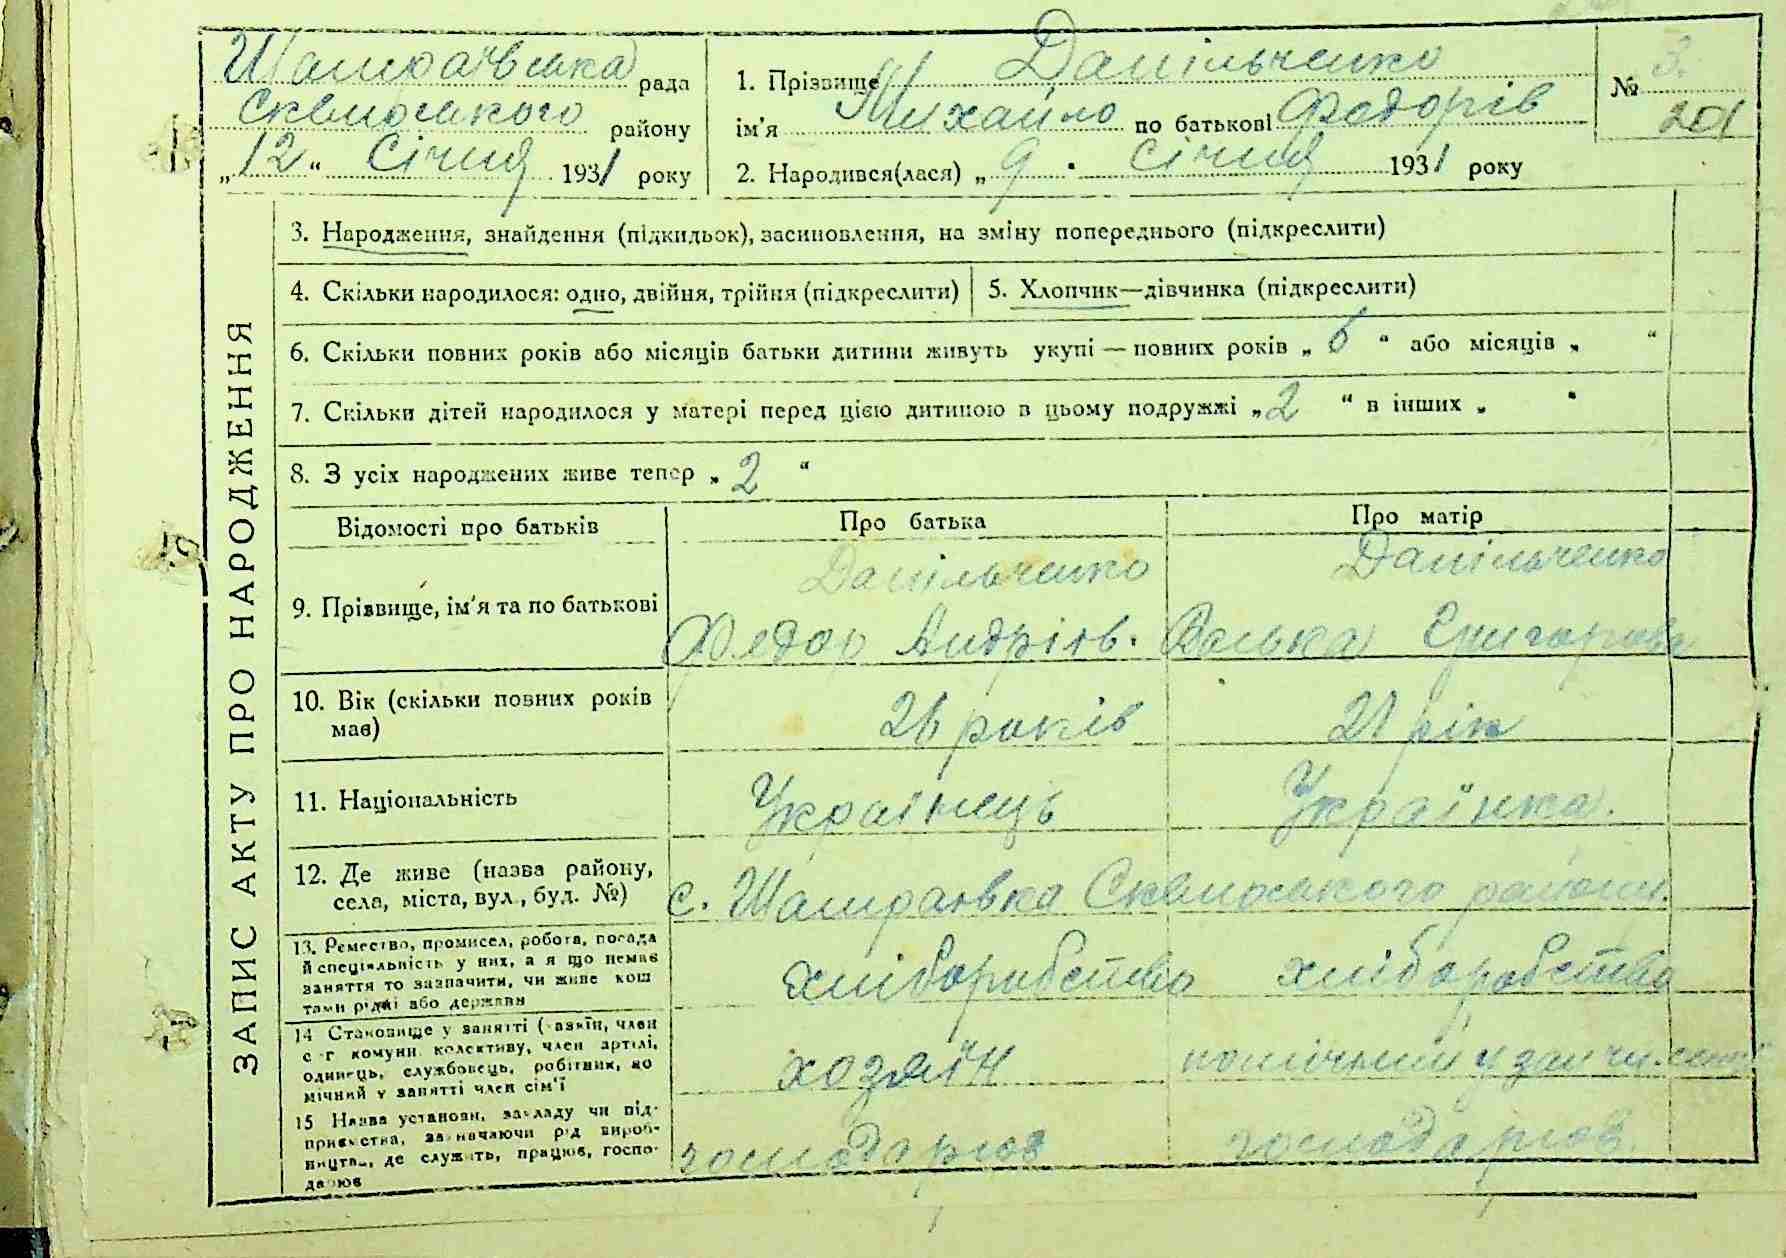 Шамраївська рада
Сквирського району
„12“ Січня 1931 року
1. Прізвище Данільченко
ім'я Михайло по батькові Федорів
2. Народився(лася) „9" січня 1931 року
№ 3.
201
ЗАПИС АКТУ ПРО НАРОДЖЕННЯ
3. Народження, знайдення (підкидьок), засиновлення, на зміну попереднього (підкреслити)
4. Скільки народилося: одно, двійня, трійня (підкреслити)
5. Хлопчик—дівчинка (підкреслити)
6. Скільки повних років або місяців батьки дитини живуть укупі — повних років „ 6 “ або місяців „ “
7. Скільки дітей народилося у матері перед цією дитиною в цьому подружжі „2 “ в інших „ "
8. З усіх народжених живе тепер „ 2 “
Відомості про батьків Про батька Про матір
9. Прізвище, ім'я та по батькові
Данільченко
Федор Андріів.
Данільченко
Григорівна
10. Вік (скільки повних років
має)
26 років 21 рік
11. Національність Українець Українка.
12. Де живе (назва району,
села, міста, вул., буд. №)
с. Шамраївка Сквирського району.
13. Ремество, промисел, робота, посада
й спеціяльність у них, а якщо немає
заняття то зазначити, чи живе кош
тами рідні або держави
хліборобство хліборобство
14 Становище у занятті (хазяїн, член
с-г комуни, колективу, член артілі,
одинець, службовець, робітник, по
мічний у занятті член сім'ї
хозяїн помічний у занятті
15 Назва установи, закладу чи під-
приємства, зазначаючи рід вироб-
ництва, де служить, працює, госпо-
дарює
господарює господарює